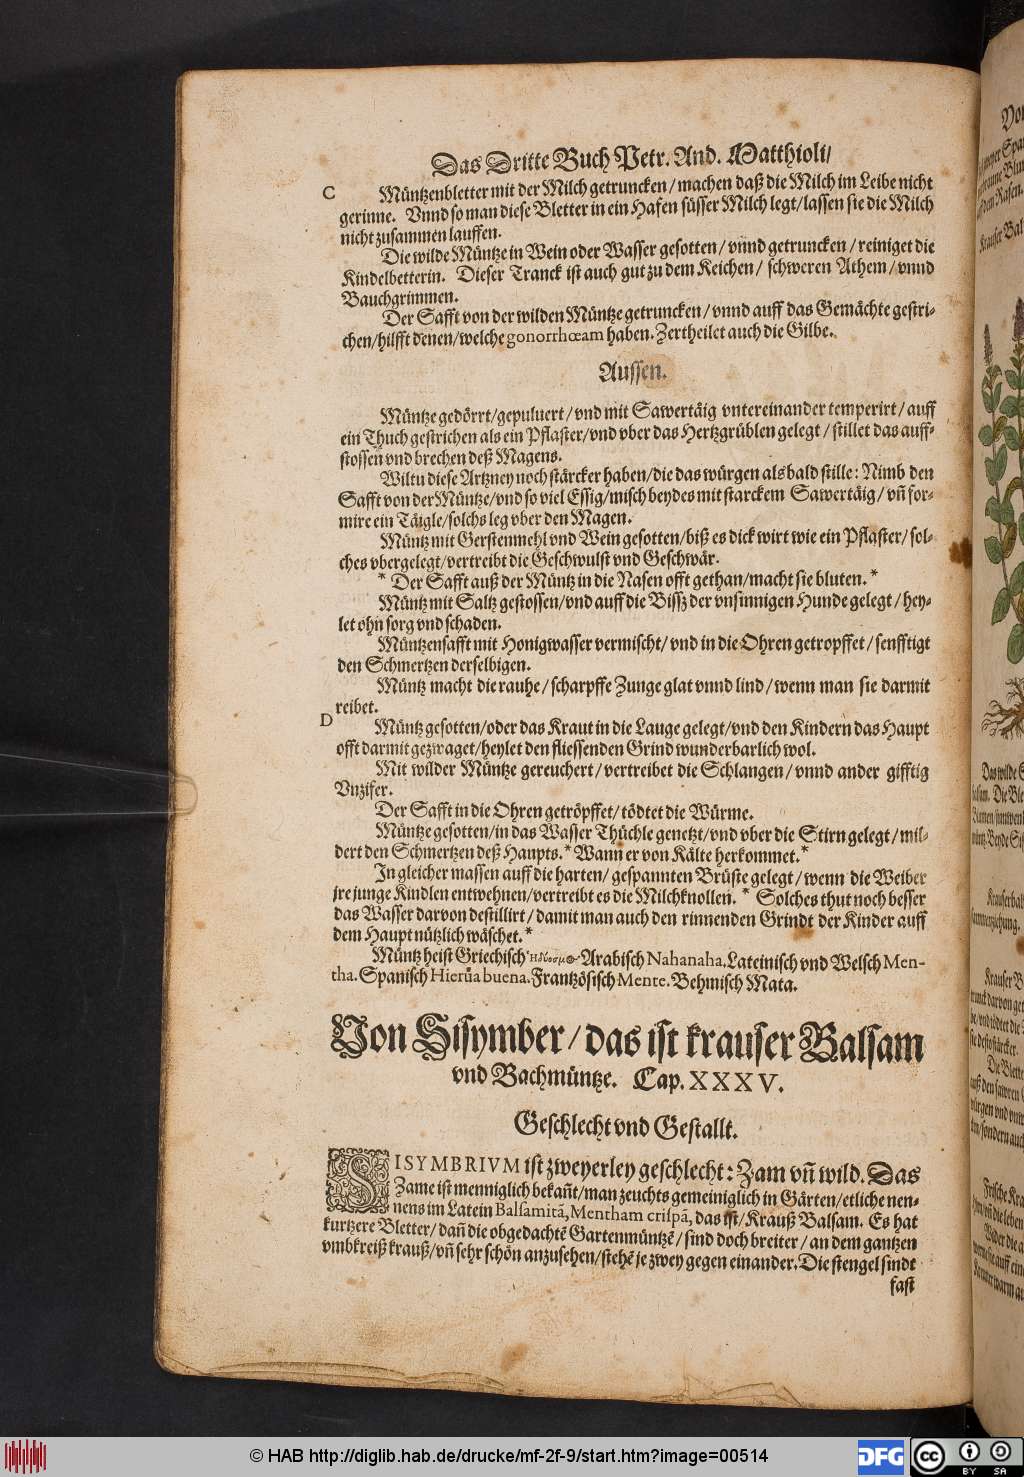 Das Dritte Buch Petr. And. Matthioli/
C
Müntzenbletter mit der Milch getruncken/machen daß die Milch im Leibe nicht
gerinne. Vnnd so man diese Bletter in ein Hafen süsser Milch legt/lassen sie die Milch
nicht zusammen lauffen.
Die wilde Müntze in Wein oder Wasser gesotten/vnnd getruncken/reiniget die
Kindelbetterin. Dieser Tranck ist auch gut zu dem Keichen/schweren Athem/vnnd
Bauchgrimmen.
Der Safft von der wilden Müntze getruncken/vnnd auff das Gemächte gestri-
chen/hilfft denen/welche gonorrhœam haben. Zertheilet auch die Gilbe.
Aussen.
Müntze gedörrt/gepuluert/vnd mit Sawertäig vntereinander temperirt/auff
ein Thuch gestrichen als ein Pflaster/vnd vber das Hertzgrüblen gelegt/stillet das auff-
stossen vnd brechen deß Magens.
Wiltu diese Artzney noch stärcker haben/die das würgen als bald stille: Nimb den
Safft von der Müntze/vnd so viel Essig/misch beydes mit starckem Sawertäig/vñ for-
mire ein Täigle/solchs leg vber den Magen.
Müntz mit Gerstenmehl vnd Wein gesotten/biß es dick wirt wie ein Pflaster/sol-
ches vbergelegt/vertreibt die Geschwulst vnd Geschwär.
* Der Safft auß der Müntz in die Nasen offt gethan/macht sie bluten. *
Müntz mit Saltz gestossen/vnd auff die Bissz der vnsinnigen Hunde gelegt/hey-
let ohn sorg vnd schaden.
Müntzensafft mit Honigwasser vermischt/vnd in die Ohren getropffet/senfftigt
den Schmertzen derselbigen.
Müntz macht die rauhe/scharpffe Zunge glat vnnd lind/wenn man sie darmit
reibet.
D
Müntz gesotten/oder das Kraut in die Lauge gelegt/vnd den Kindern das Haupt
offt darmit gezwaget/heylet den fliessenden Grind wunderbarlich wol.
Mit wilder Müntze gereuchert/vertreibet die Schlangen/vnnd ander gifftig
Vnzifer.
Der Safft in die Ohren getröpffet/tödtet die Würme.
Müntze gesotten/in das Wasser Thüchle genetzt/vnd vber die Stirn gelegt/mil-
dert den Schmertzen deß Haupts. * Wann er von Kälte herkommet. *
In gleicher massen auff die harten/gespannten Brüste gelegt/wenn die Weiber
jre junge Kindlen entwehnen/vertreibt es die Milchknollen. * Solches thut noch besser
das Wasser darvon destillirt/damit man auch den rinnenden Grindt der Kinder auff
dem Haupt nützlich wäschet. *
Müntz heist Griechisch Ἡδύοσμος. Arabisch Nahanaha. Lateinisch vnd Welsch Men-
tha. Spanisch Hierũa buena. Frantzösisch Mente. Behmisch Mata.
Von Sisymber/das ist krauser Balsam
vnd Bachmüntze. Cap. XXXV.
Geschlecht vnd Gestallt.
SISYMBRIVM ist zweyerley geschlecht: Zam vñ wild. Das
Zame ist menniglich bekañt/man zeuchts gemeiniglich in Gärten/etliche nen-
nens im Latein Balsamitã, Mentham crispã, das ist/Krauß Balsam. Es hat
kurtzere Bletter/dañ die obgedachtẽ Gartenmüntzẽ/sind doch breiter/an dem gantzen
vmbkreiß krauß/vñ sehr schön anzusehen/stehẽ je zwey gegen einander. Die stengel sindt
fast
© HAB http://diglib.hab.de/drucke/mf-2f-9/start.htm?image=00514
DFG
cc BY SA